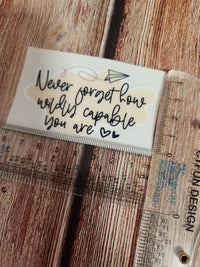 Never forget how
wildly capable
you are
FUN DESIGN